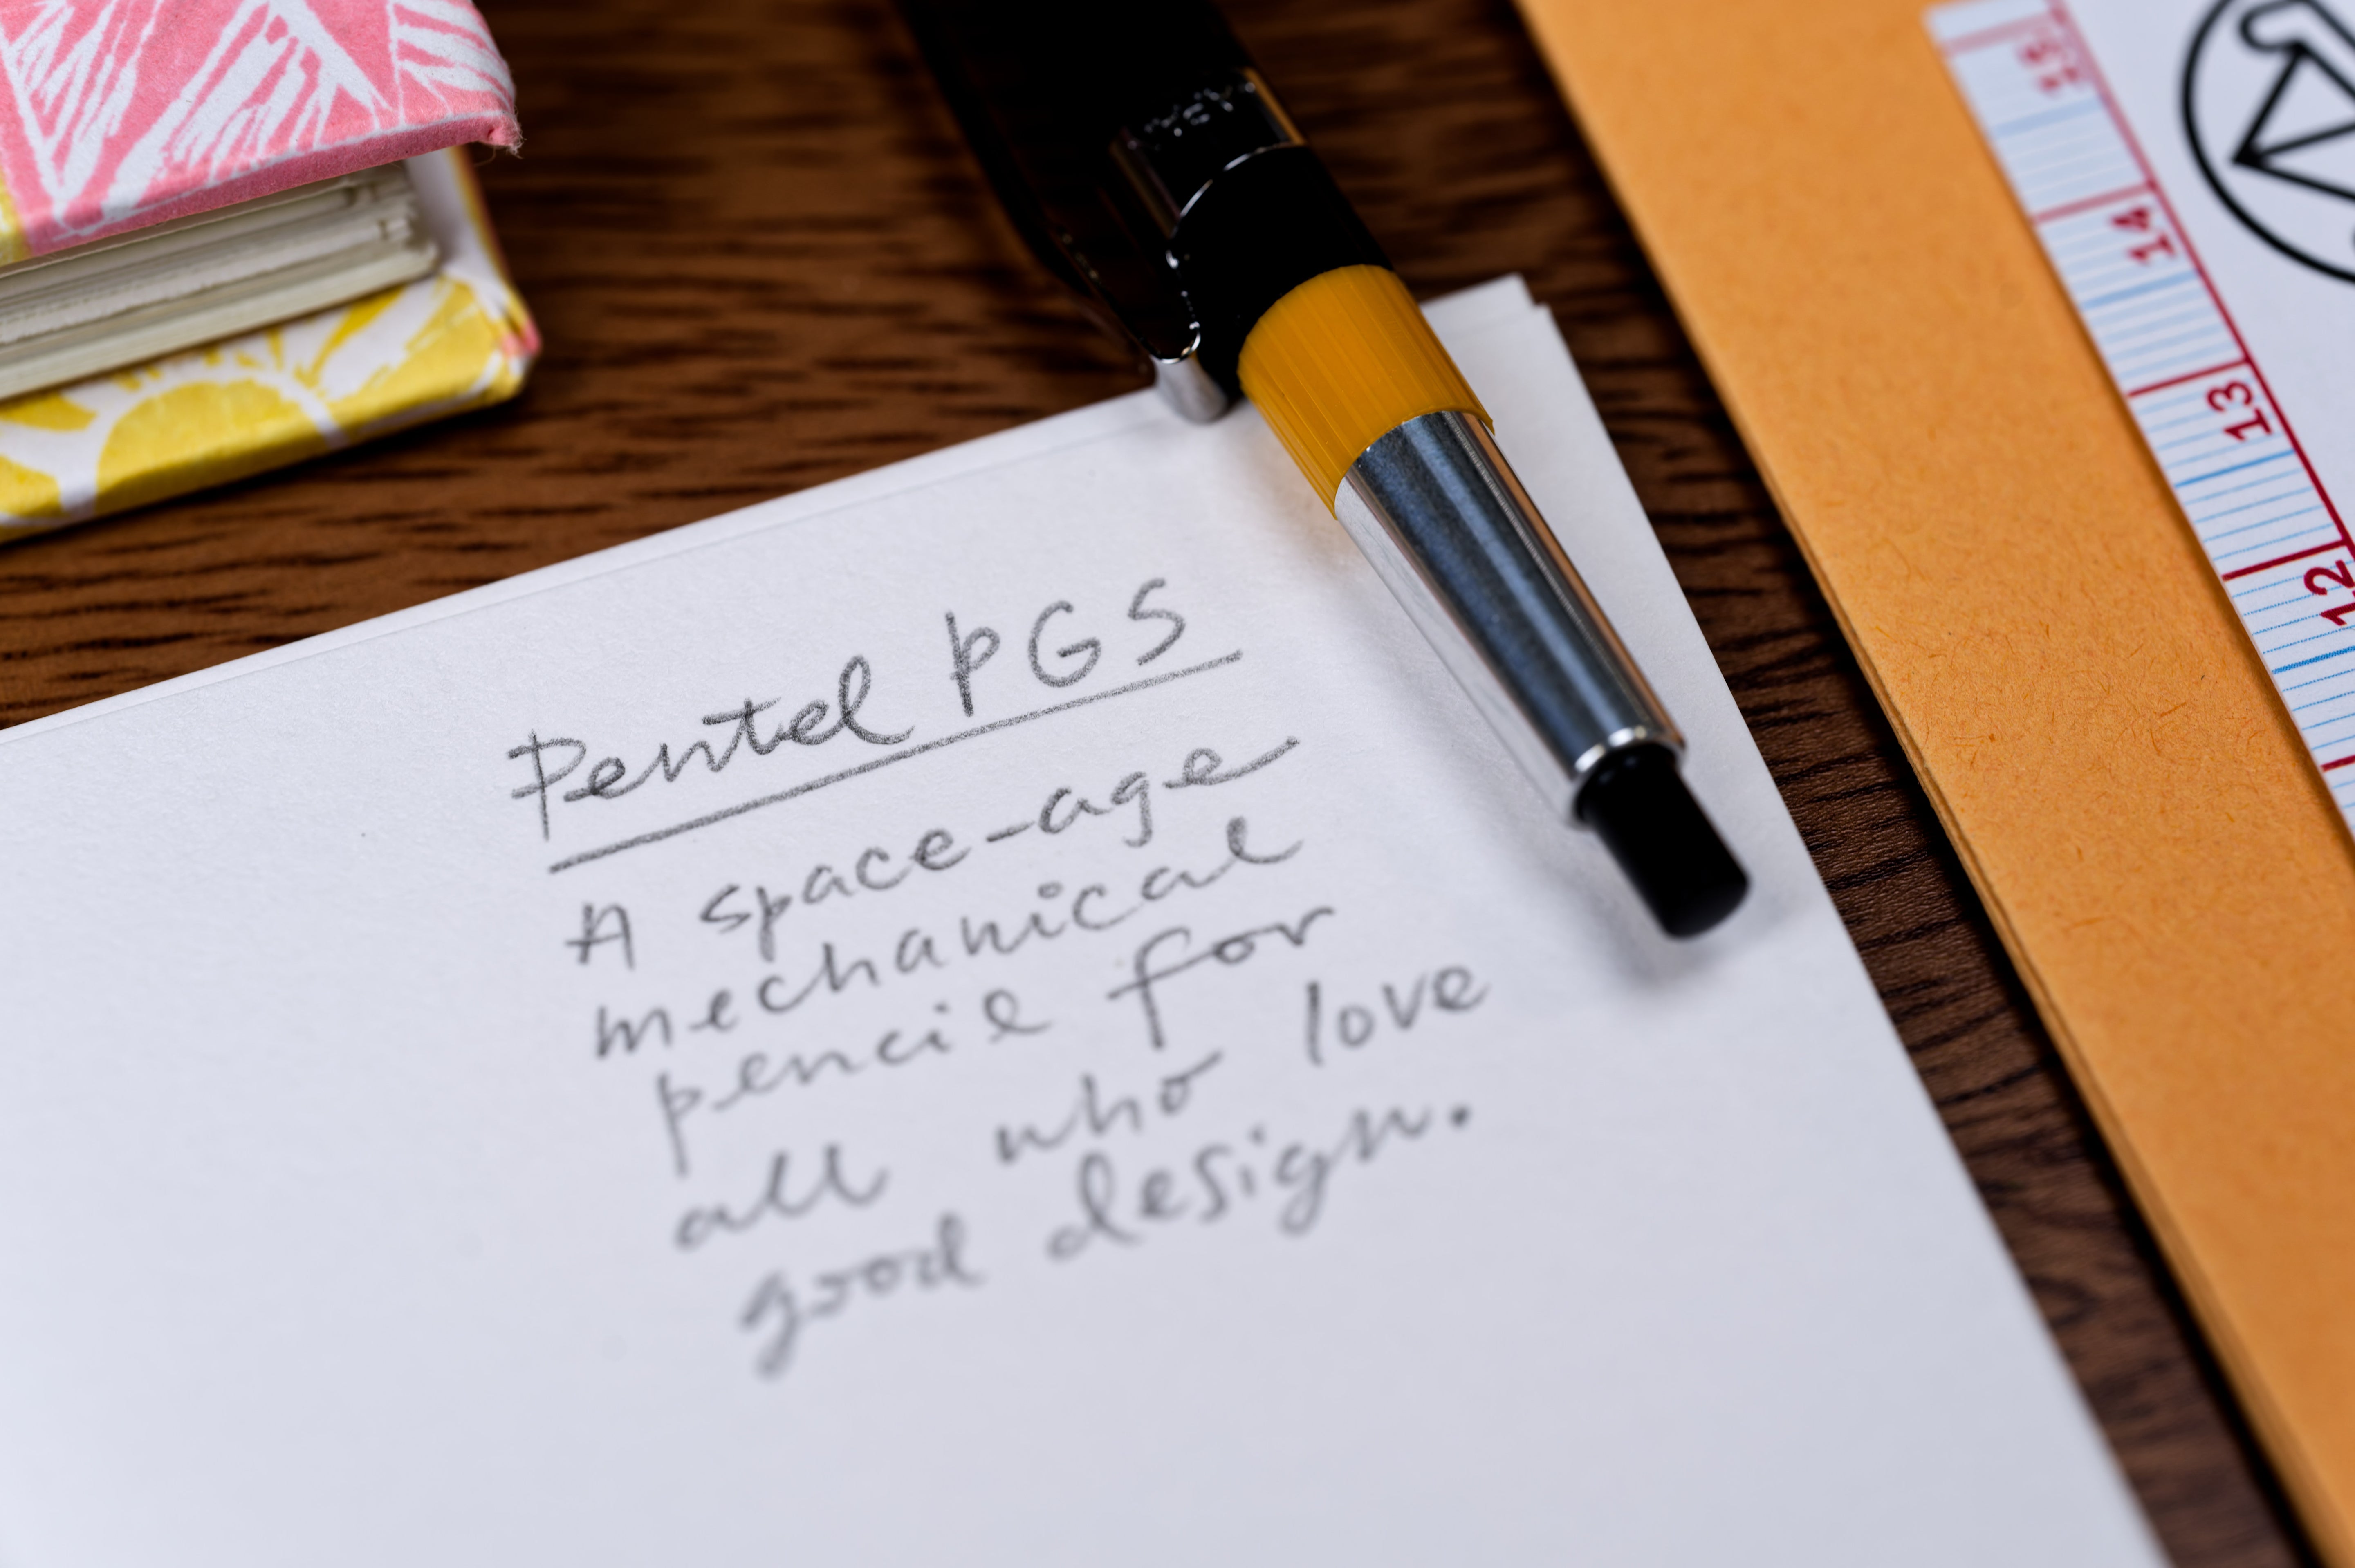 Pentel PG5
A space-age
mechanical
pencil for
all who love
good design.
15
14
13
12